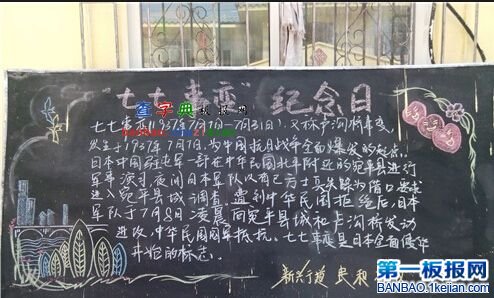 "七七事变"纪念日
查字典
板报网
七七事变(1937年7月7日-7月31日),又称卢沟桥事变,
发生于1937年7月7日,为中国抗日战争全面爆发的起点,
日本中国驻屯军一部在中华民国北平附近的宛平县进行
军事演习夜间日本军队以有己方士兵失踪为借口要求
进入宛平县城调查。遭到中华民国拒绝后,日本
军队于7月8日凌晨向宛平县城和卢沟桥发动
进攻.中华民国国军抵抗。七七事变是日本全面侵华
开始的标志。
新兴宁波 民和
第一板报网
BANBAO.1kejian.com